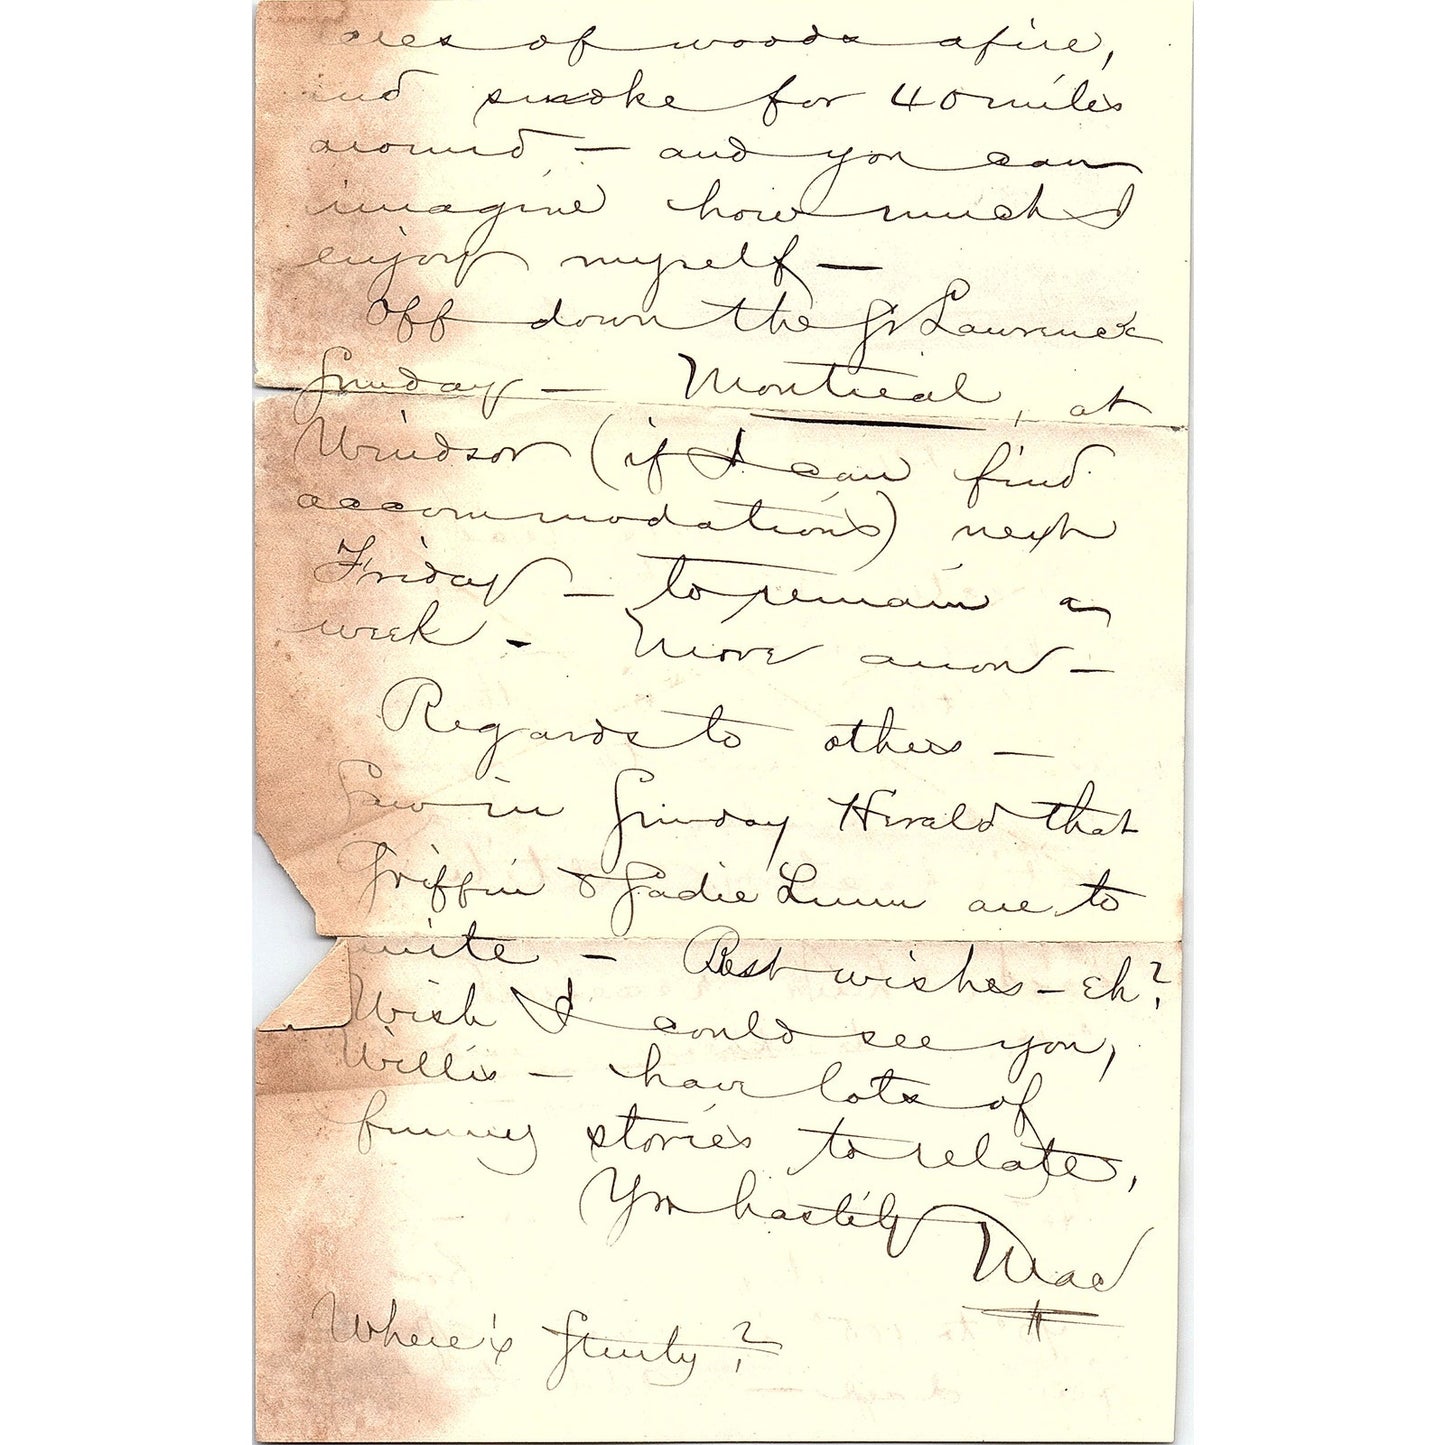 acres of woods afire,
and smoke for 40 miles
around — and you can
imagine how much I
enjoy myself —
Off down the St Lawrence
Sunday — Montreal, at
Windsor (if I can find
accommodations) next
Friday — to remain a
week - More anon —
Regards to others —
Saw in Sunday Herald that
Griffin & Sadie Lunn are to
unite — Best wishes — Eh?
Wish I could see you,
Willis — have lots of
funny stories to relate,
Yrs hastily
Mac
Where's ?